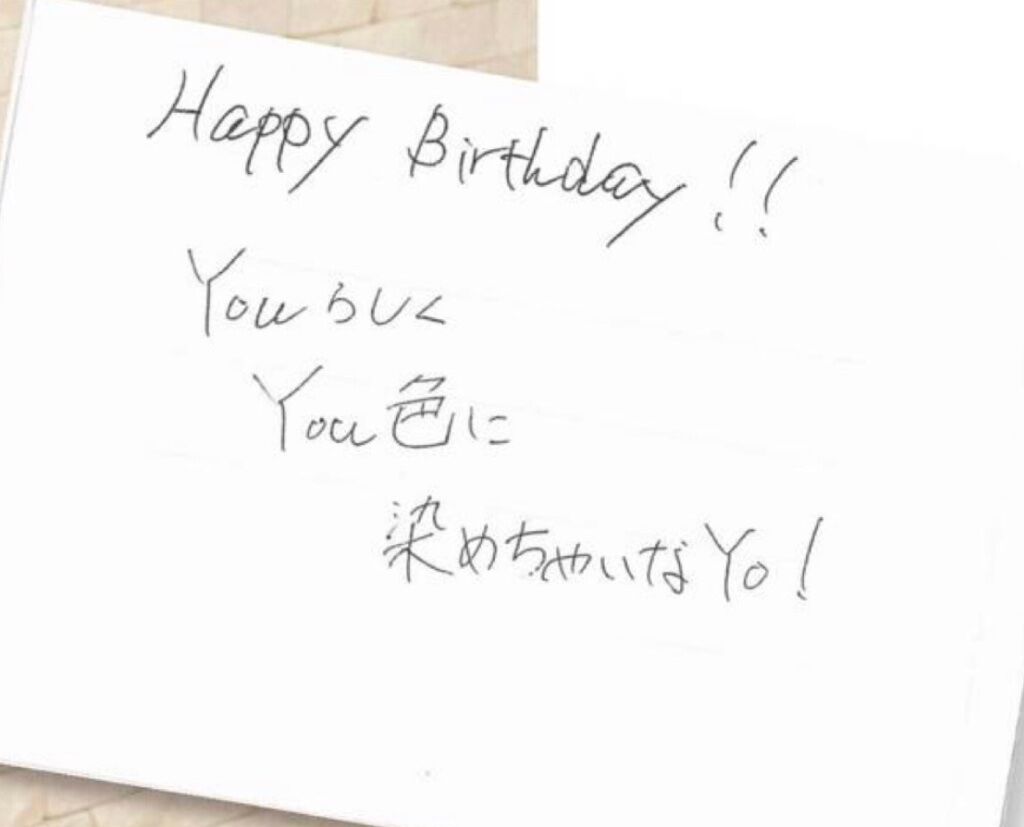 Happy Birthday!!
Youらしく
You色に
染めちゃいなYo!